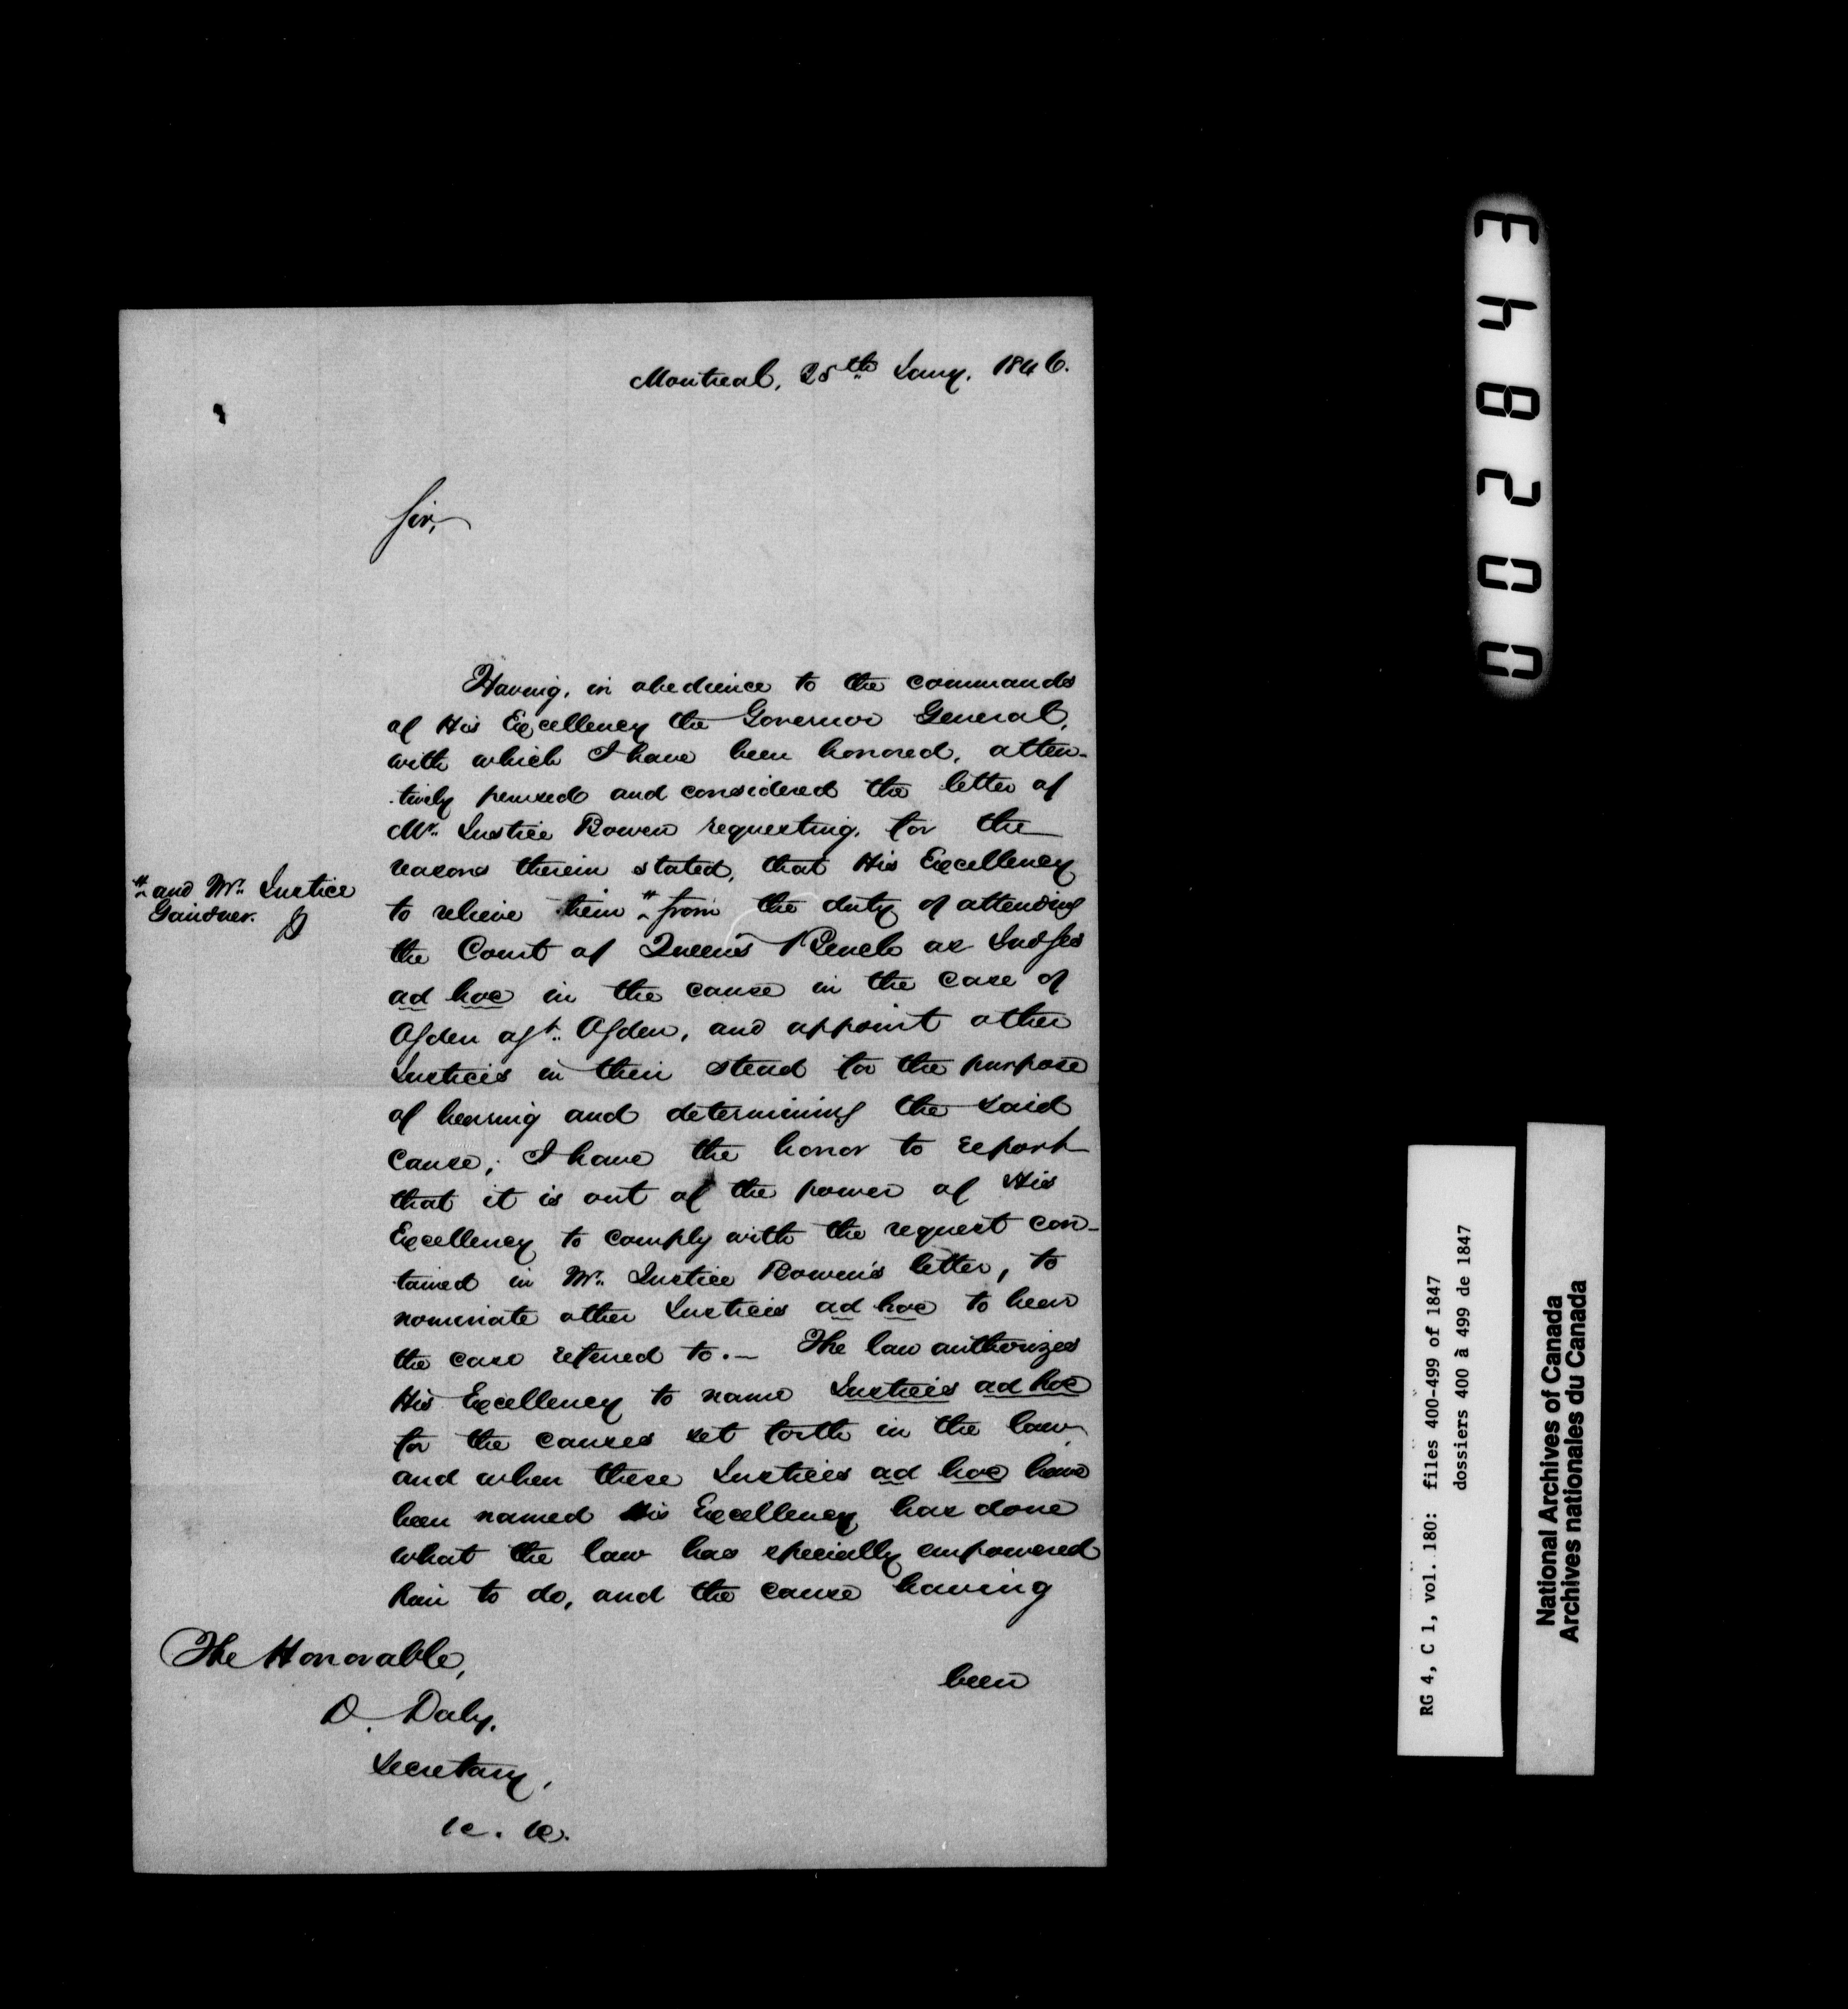 Montreal, 25th Jany. 1846.
Sir,
Having, in obedience to the commands
of His Excellency the Governor General,
with which I have been honored, atten-
-tively perused and considered the letter of
Mr. Justice Bowen requesting, for the
reasons therein stated, that His Excellency
" and Mr. Justice
Gairdner.
to relieve him " from the duty of attending
the Court of Queen's Bench as Judges
ad hoc in the cause in the case of
Ogden agt. Ogden, and appoint other
Justices in their stead for the purpose
of hearing and determining the said
Cause; I have the honor to report
that it is out of the power of His
Excellency to comply with the request con-
tained in Mr. Justice Bowen's letter, to
nominate other Justices ad hoc to hear
the case refered to. — The law authorizes
His Excellency to name Justices ad hoc
for the causes set forth in the law,
and when these Justices ad hoc have
been named His Excellency has done
what the law has specially empowered
him to do, and the cause having
been
The Honorable,
D. Daly,
Secretary,
&c. &c.
002843
RG 4, C 1, vol. 180: files 400-499 of 1847
dossiers 400 à 499 de 1847
National Archives of Canada
Archives nationales du Canada